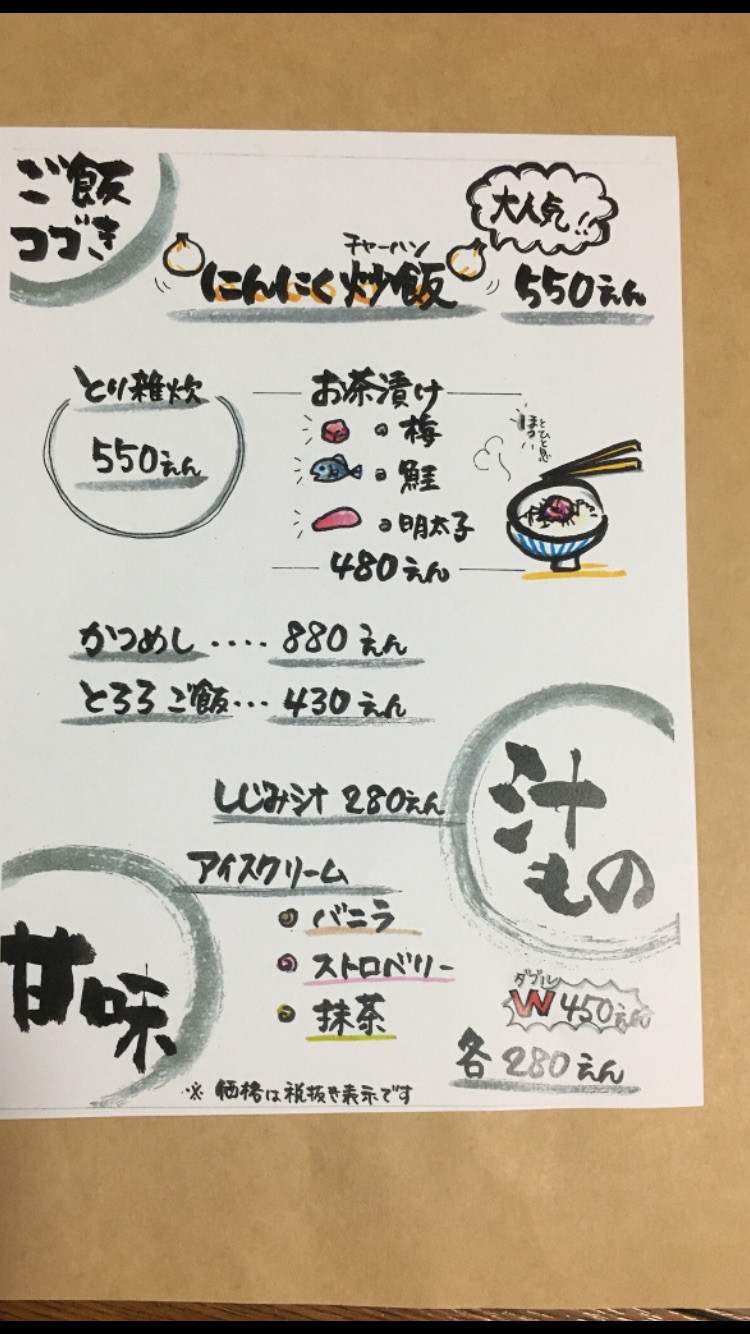 ご飯
つづき
大人気!!
チャーハン
にんにく炒飯 550えん
とり雑炊
550えん
お茶漬け
梅
鮭
明太子
480えん
ほっ
とひと息
かつめし‥‥ 880えん
とろろご飯… 430えん
汁もの
しじみ汁 280えん
甘味
アイスクリーム
バニラ
ストロベリー
抹茶
ダブル
W 450えん
各280えん
※ 価格は税抜き表示です